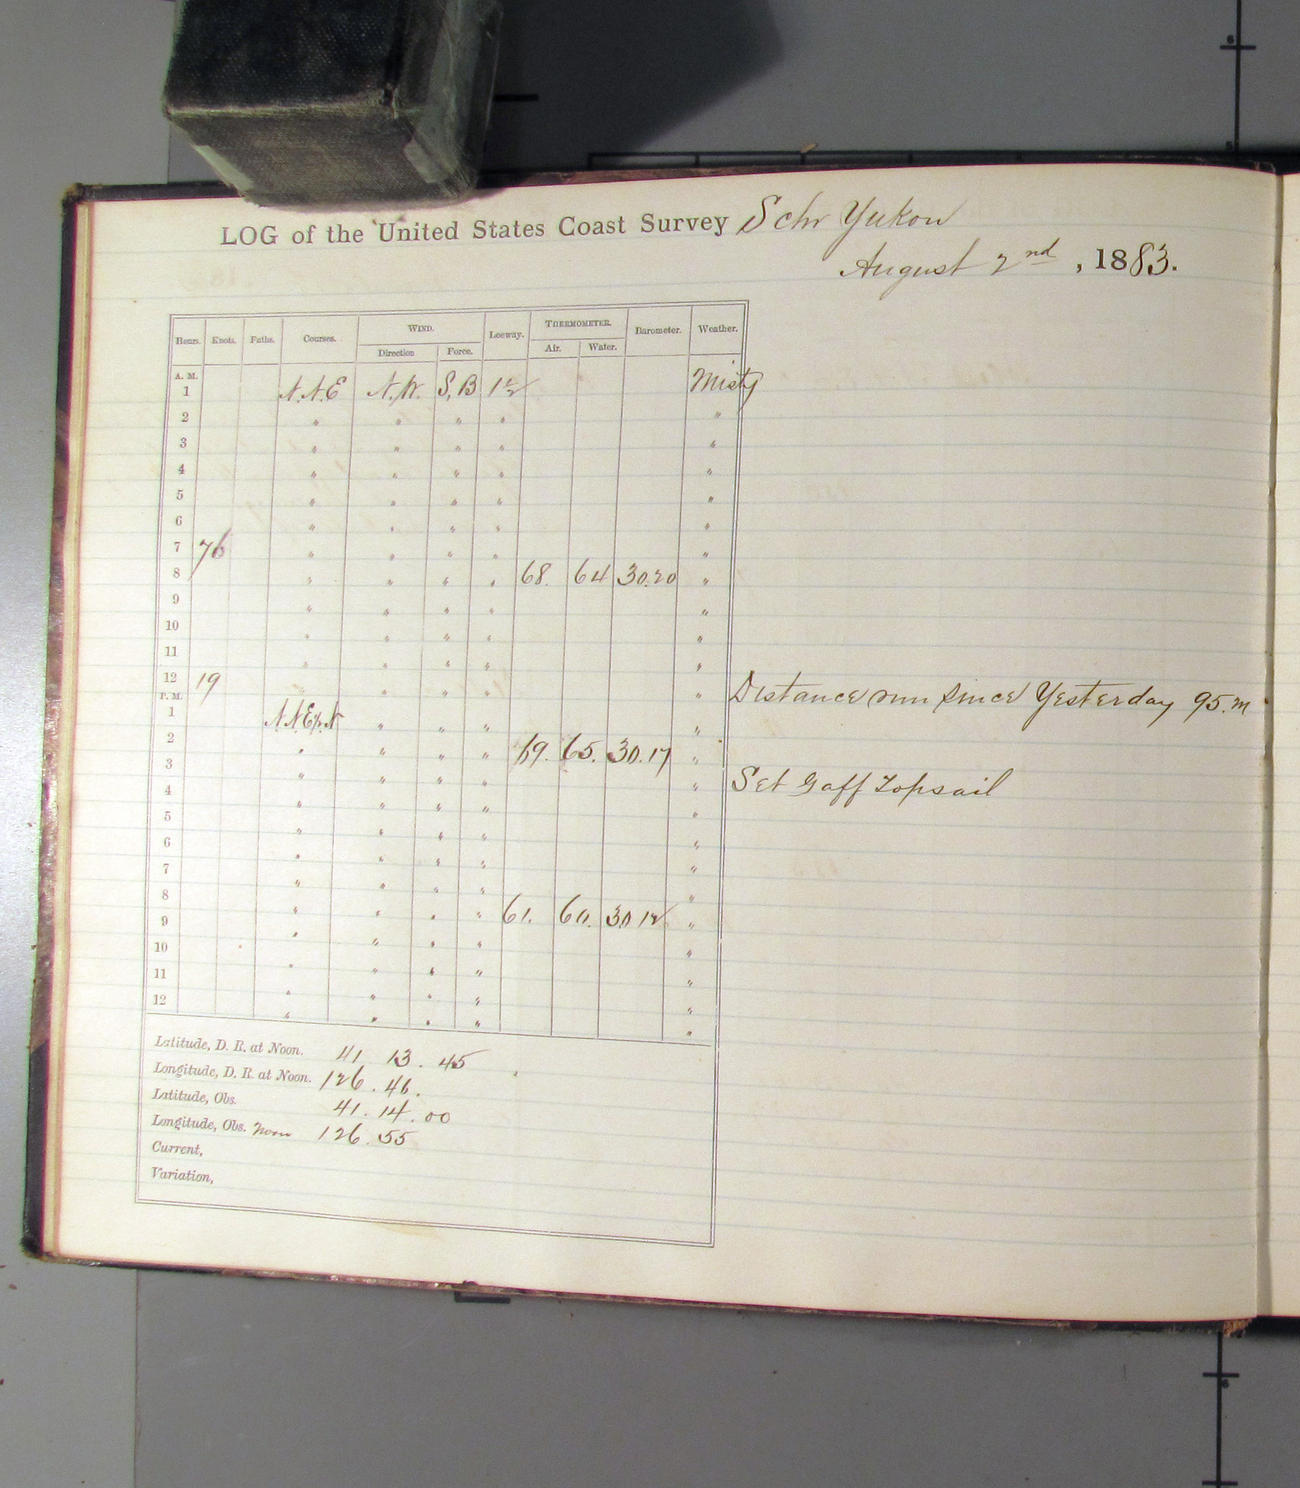 LOG of the United States Coast Survey Schr Yukon
August 2nd, 1883.
Hours. Knots. Faths. Courses. WIND. Leeway. THERMOMETER. Barometer. Weather.
Direction Force. Air. Water.
A. M.
1 N.N.E N.W. S,B 1½ Misty
2 " " " " "
3 " " " " "
4 " " " " "
5 " " " " "
6 " " " " "
7 76 " " " " "
8 " " " " 68. 64 30.20 "
9 " " " " "
10 " " " " "
11 " " " " "
12 19 " " " " " Distance run Since Yesterday 95.m
P. M.
1 N.N.E½N " " " "
2 " " " " 69. 65. 30.17 "
3 " " " " " Set Gaff Topsail
4 " " " " "
5 " " " " "
6 " " " " "
7 " " " " "
8 " " " " 61. 60. 30 12 "
9 " " " " "
10 " " " " "
11 " " " " "
12 " " " " "
Latitude, D. R. at Noon. 41 13. 45
Longitude, D. R. at Noon. 126. 46.
Latitude, Obs. 41. 14. 00
Longitude, Obs. Noon 126. 55
Current,
Variation,